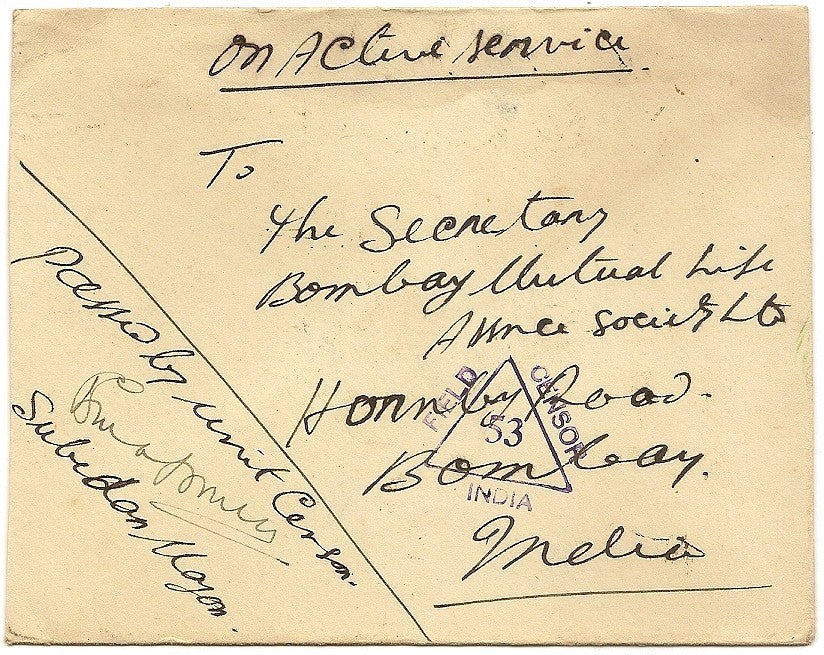 On Active Service
To
The Secretary
Bombay Mutual Life
Assnce Society Ltd
Hornby Road.
Bombay.
India
FIELD CENSOR
53
INDIA
Passed by Unit Censor.
Subedar Major.